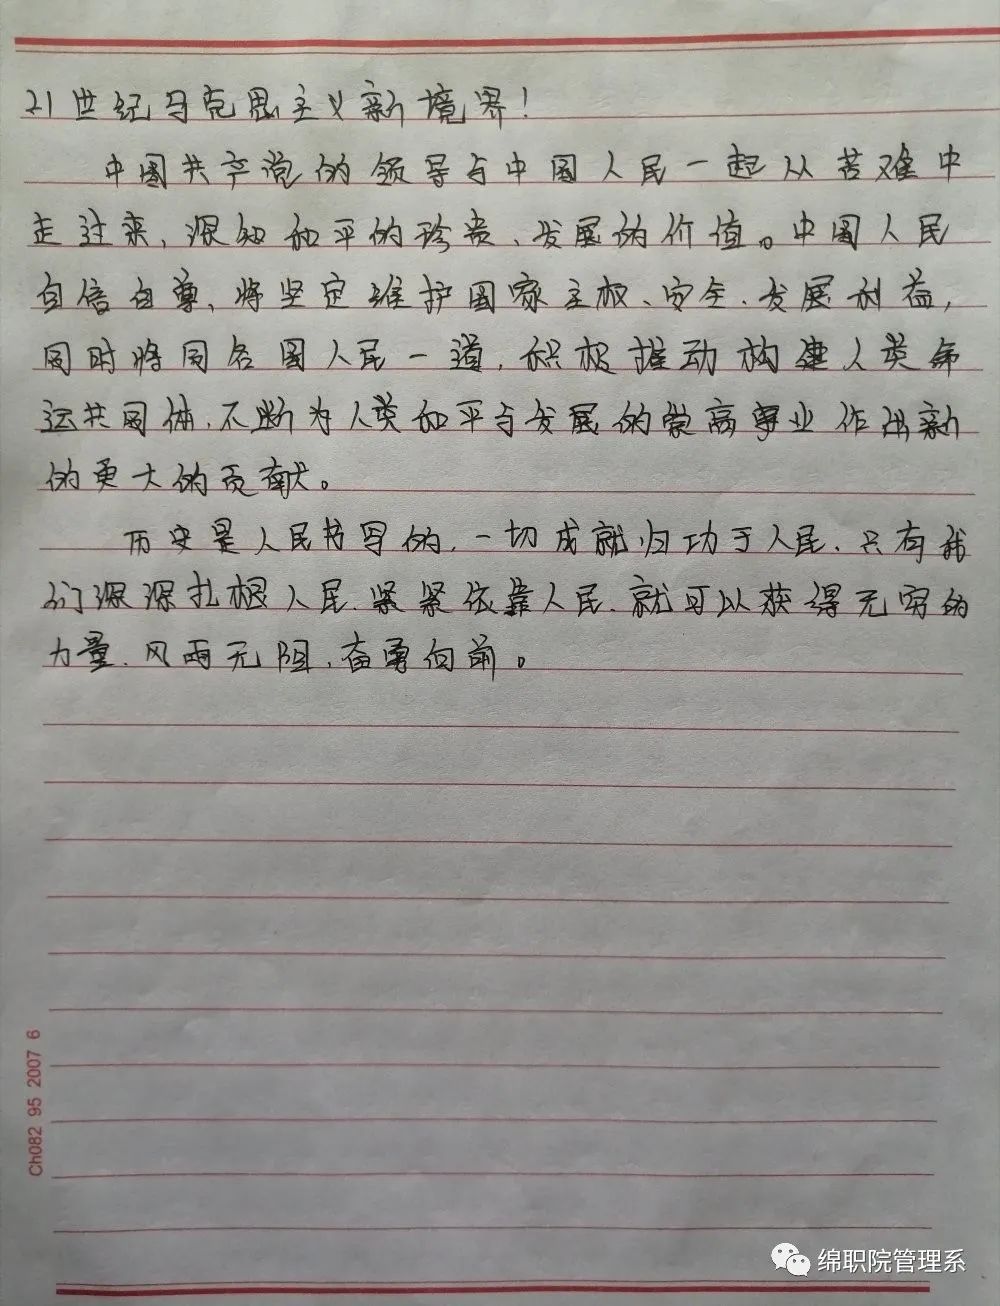 21世纪马克思主义新境界！
中国共产党的领导与中国人民一起从苦难中
走过来、深知和平的珍贵、发展的价值。中国人民
自信自尊、将坚定维护国家主权、安全、发展利益，
同时将同各国人民一道，积极推动构建人类命
运共同体、不断为人类和平与发展的崇高事业作出新
的更大的贡献。
历史是人民书写的，一切成就归功于人民、只有我
们深深扎根人民、紧紧依靠人民、就可以获得无穷的
力量、风雨无阻、奋勇向前。
Ch082 95 2007 6
绵职院管理系